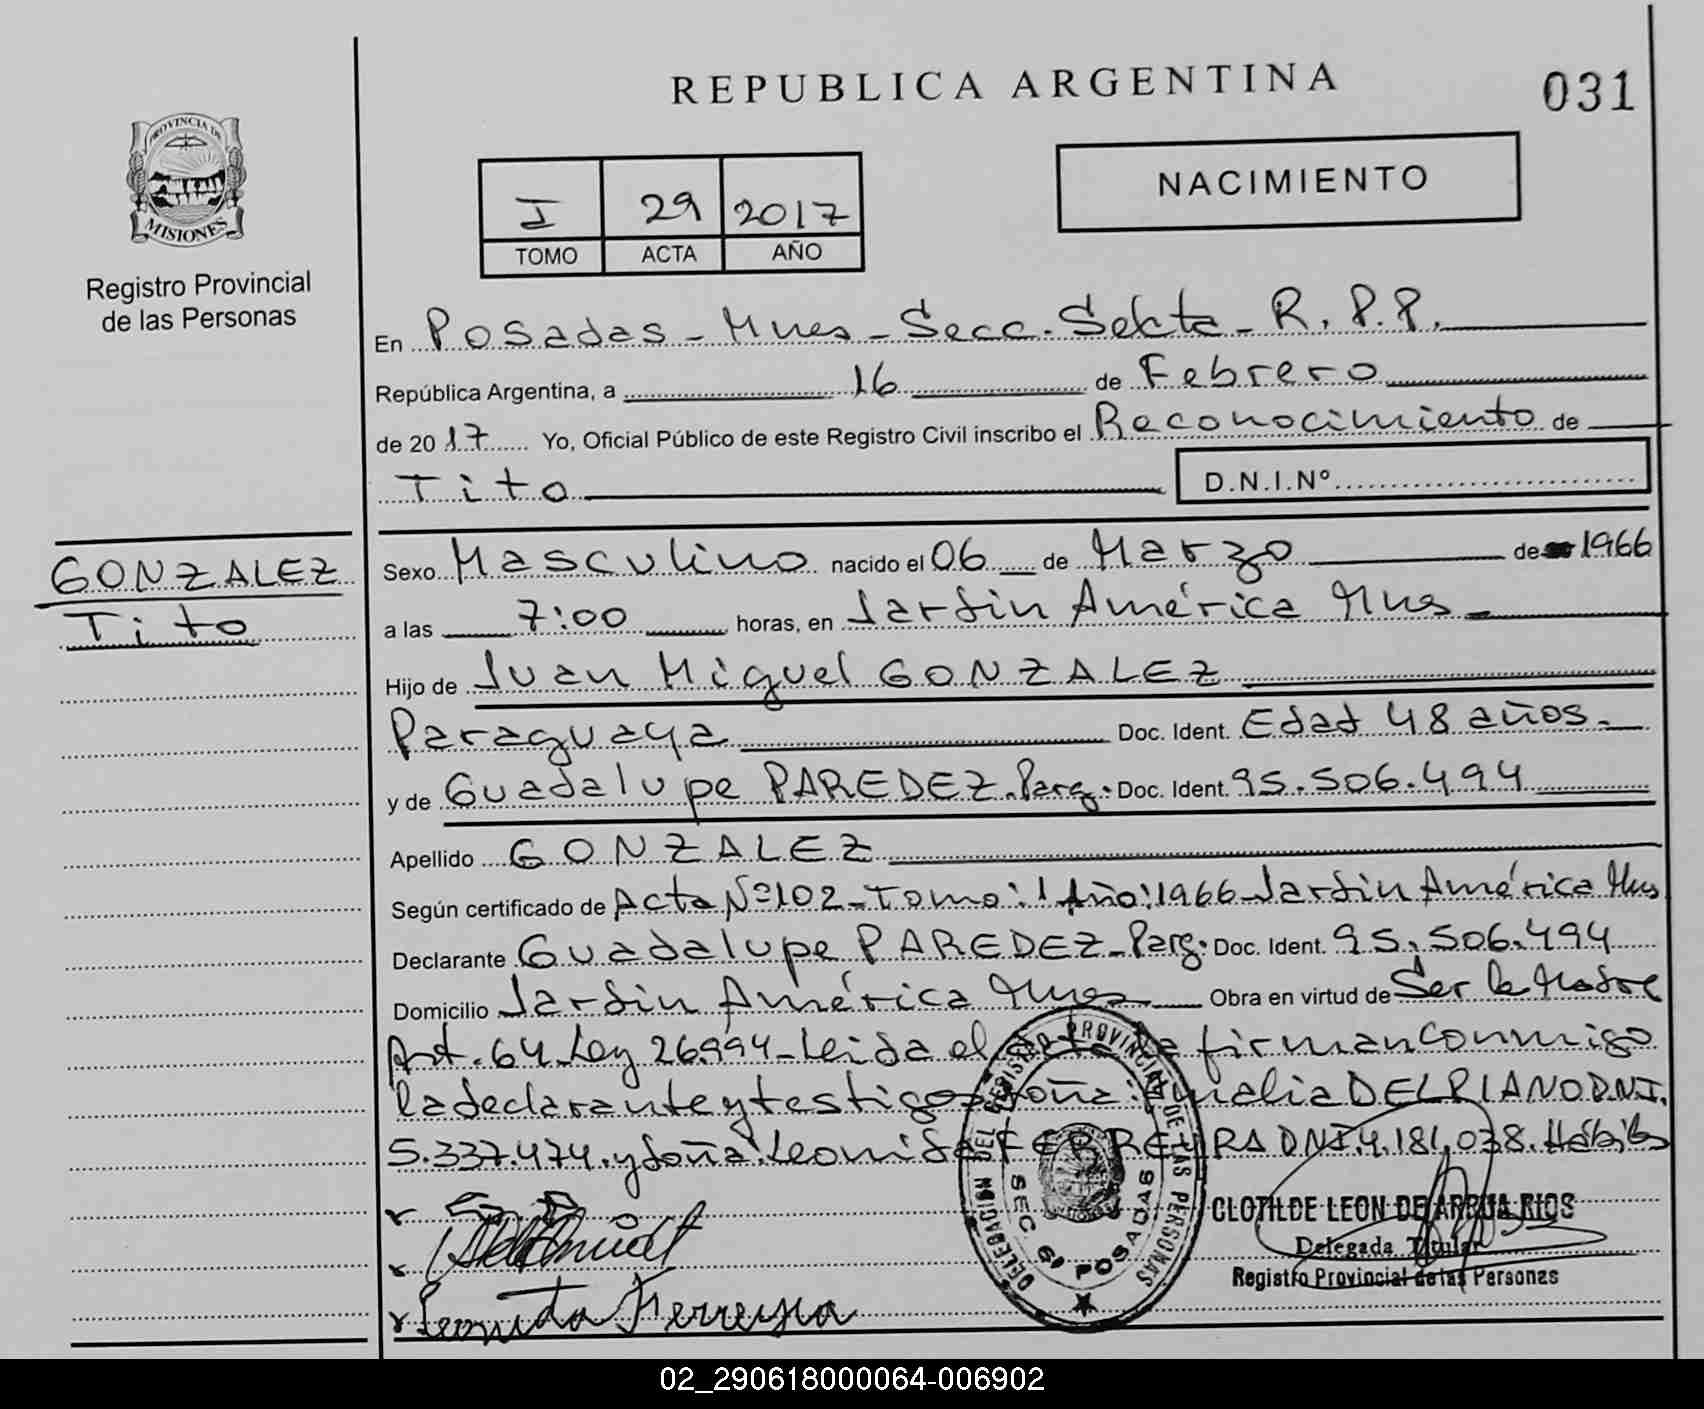 REPUBLICA ARGENTINA
031
PROVINCIA DE
MISIONES
Registro Provincial
de las Personas
I 29 2017
TOMO ACTA AÑO
NACIMIENTO
En Posadas - Mnes - Secc. Sekta - R. P. P.
República Argentina, a 16 de Febrero
de 2017 Yo, Oficial Público de este Registro Civil inscribo el Reconocimiento de
Tito D.N.I.Nº
GONZALEZ
Tito
Sexo Masculino nacido el 06 de Marzo de 1966
a las 7:00 horas, en Jardin América Mnes
Hijo de Juan Miguel GONZALEZ
Paraguaya Doc. Ident. Edad 48 años.
y de Guadalupe PAREDEZ. Parg: Doc. Ident. 95.506.494
Apellido GONZALEZ
Según certificado de Acta Nº 102 - Tomo: 1 Año: 1966 - Jardin América Mnes
Declarante Guadalupe PAREDEZ - Parg: Doc. Ident. 95.506.494
Domicilio Jardin América Mnes Obra en virtud de Ser la Madre
Art. 64 Ley 26.994 - Leida el acta la firman conmigo
la declarante y testigos doña: Amalia DELPIANO D.N.I.
5.337.474. y doña: Leonida FERREYRA DNI. 4.181.038. Hábiles
DELEGACION DEL REGISTRO PROVINCIAL DE LAS PERSONAS
SEC 6ª POSADAS
CLOTILDE LEON DE ARRUA RIOS
Delegada Titular
Registro Provincial de las Personas
Leonida Ferreyra
02_290618000064-006902